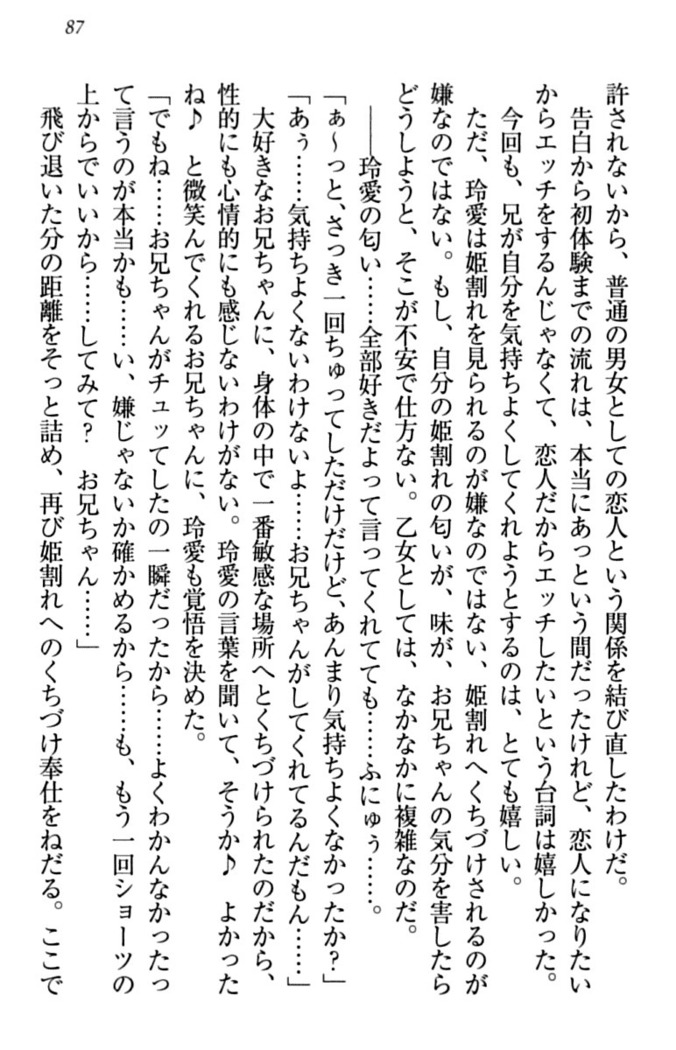 87
許されないから、普通の男女としての恋人という関係を結び直したわけだ。
告白から初体験までの流れは、本当にあっという間だったけれど、恋人になりたい
からエッチをするんじゃなくて、恋人だからエッチしたいという台詞は嬉しかった。
今回も、兄が自分を気持ちよくしてくれようとするのは、とても嬉しい。
ただ、玲愛は姫割れを見られるのが嫌なのではない、姫割れへくちづけされるのが
嫌なのではない。もし、自分の姫割れの匂いが、味が、お兄ちゃんの気分を害したら
どうしようと、そこが不安で仕方ない。乙女としては、なかなかに複雑なのだ。
――玲愛の匂い……全部好きだよって言ってくれてても……ふにゅぅ……。
「ぁ～っと、さっき一回ちゅってしただけだけど、あんまり気持ちよくなかったか？」
「あぅ……気持ちよくないわけないよ……お兄ちゃんがしてくれてるんだもん……」
大好きなお兄ちゃんに、身体の中で一番敏感な場所へとくちづけられたのだから、
性的にも心情的にも感じないわけがない。玲愛の言葉を聞いて、そうか♪　よかった
ね♪　と微笑んでくれるお兄ちゃんに、玲愛も覚悟を決めた。
「でもね……お兄ちゃんがチュッてしたの一瞬だったから……よくわかんなかったっ
て言うのが本当かも……い、嫌じゃないか確かめるから……も、もう一回ショーツの
上からでいいから……してみて？　お兄ちゃん……」
飛び退いた分の距離をそっと詰め、再び姫割れへのくちづけ奉仕をねだる。ここで